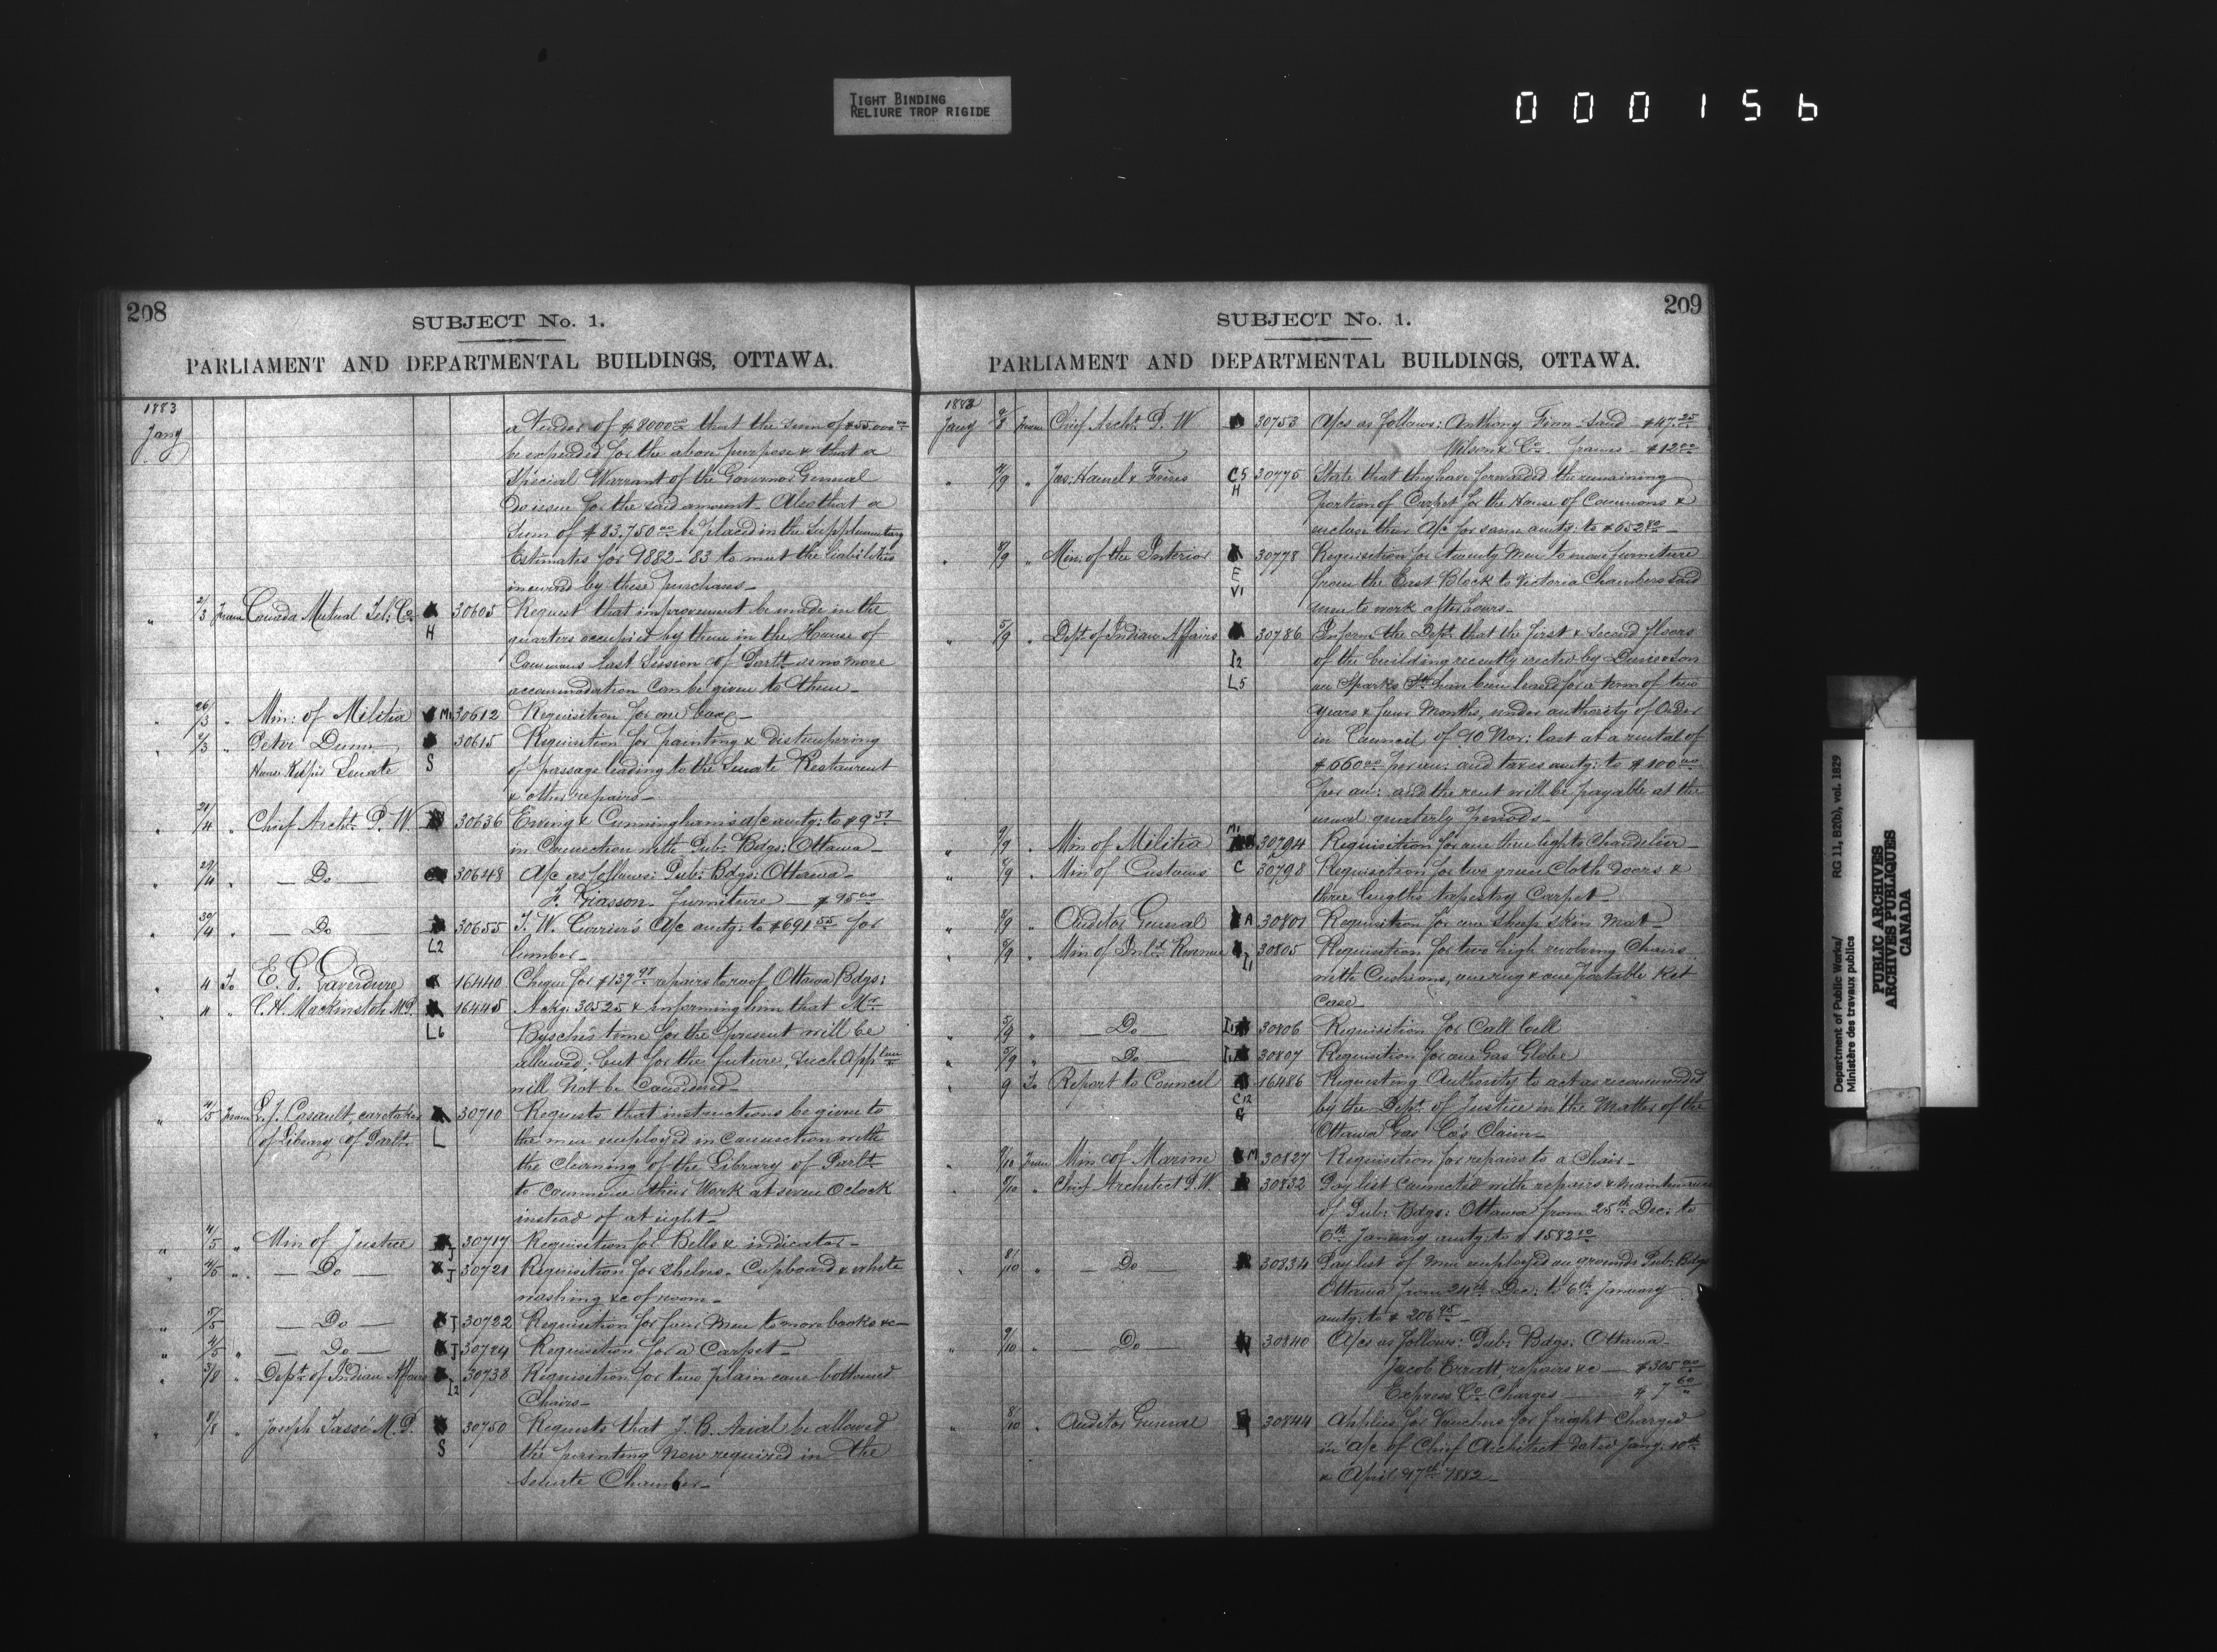 TIGHT BINDING
RELIURE TROP RIGIDE
000156
208
SUBJECT No. 1.
PARLIAMENT AND DEPARTMENTAL BUILDINGS, OTTAWA.
1883
Jany
a Tender of $8000.00 that the sum of $55.000.00
be expended for the above purpose & that a
Special Warrant of the Governor General
do issue for the said amount. Also that a
Sum of $83,750.00 be placed in the Supplementary
Estimates for 1882-83 to meet the liabilities
incurred by these purchases
" 2/3 From Canada Mutual Tel: Co. H 30605 Request that improvement be made in the
quarters occupied by them in the House of
Commons last Session of Parlt. as no more
accommodation can be given to them
" 26/3 " Min: of Militia M1 30612 Requisition for one
" 2/3 " Peter Dunn 30615 Requisition for painting & distempering
House Keeper Senate S of passage leading to the Senate Restaurent
& other repairs
" 21/4 " Chief Archt. P. W. 30636 Ewing & Cunningham's a/c amtg: to $9.57
in connection with Pub: Bdgs: Ottawa
" 29/4 " Do 30648 A/c as follows: Pub: Bdgs: Ottawa
F. Giasson furniture $95.00
" 30/4 " Do 30655 T. W. Currier's A/c amtg: to $691.55 for
L2 lumber
" 4 To E. G. Laverdure 16440 Cheque for $137.97 repairs to roof Ottawa Bdgs:
" 4 " C. H. Mackintosh M.P. 16445 Ackg: 30525 & informing him that Mr.
L6 time for the present will be
allowed, but for the future, such
will not be considered
" 4/5 From L. J. Casault, caretaker 30710 Requests that instructions be given to
of Library of Parlt. L the men employed in connection with
the cleaning of the Library of Parlt.
to commence their Work at seven Oclock
instead of at eight
" 4/5 " Min of Justice J 30717 Requisition for Bells & indicator
" 4/5 " Do J 30721 Requisition for shelves. Cupboard & white
washing &c of room
" 5/5 Do J 30722 Requisition for four Men to move books &c
" 4/5 " Do J 30724 Requisition for a Carpet
" 5/8 " Dept. of Indian Affairs I2 30738 Requisition for two plain cane bottomed
Chairs
" 8/8 " Joseph Tassé M.P. 30750 Requests that J. B. Arial be allowed
S the painting now required in the
Senate Chamber
209
SUBJECT No. 1.
PARLIAMENT AND DEPARTMENTAL BUILDINGS, OTTAWA.
1883
Jany 9/8 From Chief Archt. P. W 30753 A/cs as follows: Anthony Finn Sand $47.25
Wilson & Co. frames $12.00
" 4/9 " Jas: Hamel & Frères C5 30775 State that they have forwarded the remaining
H portion of Carpet for the House of Commons &
enclose their A/c for same amtg: to $652.80
" 8/9 " Min: of the Interior 30778 Requisition for twenty Men to move furniture
E from the East Block to Victoria Chambers said
V1 men to work after hours
" 5/9 " Dept. of Indian Affairs 30786 Inform the Dept. that the first & second floors
I2 of the building recently erected by & Son
L5 on Sparks St. have been leased for a term of two
years & four Months, under authority of Order
in Council of 10 Nov: last at a rental of
$660.00 per an: and taxes amtg: to $100.00
per an: and the rent will be payable at the
usual quarterly periods
" 9/9 " Min of Militia M1 30794 Requisition for one three light Chandelier
" 8/9 " Min of Customs C 30798 Requisition for two green Cloth Doors &
three lengths tapestry Carpet
" 8/9 " Auditor General A 30801 Requisition for one sheep skin mat
" 8/9 " Min of Inld. Revenue I1 30805 Requisition for two high revolving Chairs
with Cushions, one rug & one portable Kit
Case
" 5/9 " Do I1 30806 Requisition for Call bell
" 5/9 " Do I1 30807 Requisition for one Gas Globe
" 9 To Report to Council 16486 Requesting Authority to act as recommended
C12 by the Dept. of Justice in the Matter of the
G Ottawa Gas Co's Claim
" 9/10 From Min of Marine M 30827 Requisition for repairs to a Chair
" 8/10 " Chief Architect P.W. 30832 Pay list connected with repairs & maintenance
of Pub: Bdgs: Ottawa from 25th Dec: to
6th January amtg: to $1582.10
" 8/10 " Do 30834 Pay list of men employed on grounds Pub: Bdgs
Ottawa from 24th Dec: to 6th January
amtg: to $206.95
" 9/10 " Do 30840 A/cs as follows: Pub: Bdgs: Ottawa
Jacob Erratt, repairs &c $305.00
Express Co. Charges " 7.60
" 8/10 " Auditor General 30844 Applies for Vouchers for freight Charged
in a/c of Chief Architect dated Jany: 10th
& April 17th 1882
Department of Public Works/ RG 11, B2(b), vol. 1829
Ministère des travaux publics
PUBLIC ARCHIVES
ARCHIVES PUBLIQUES
CANADA